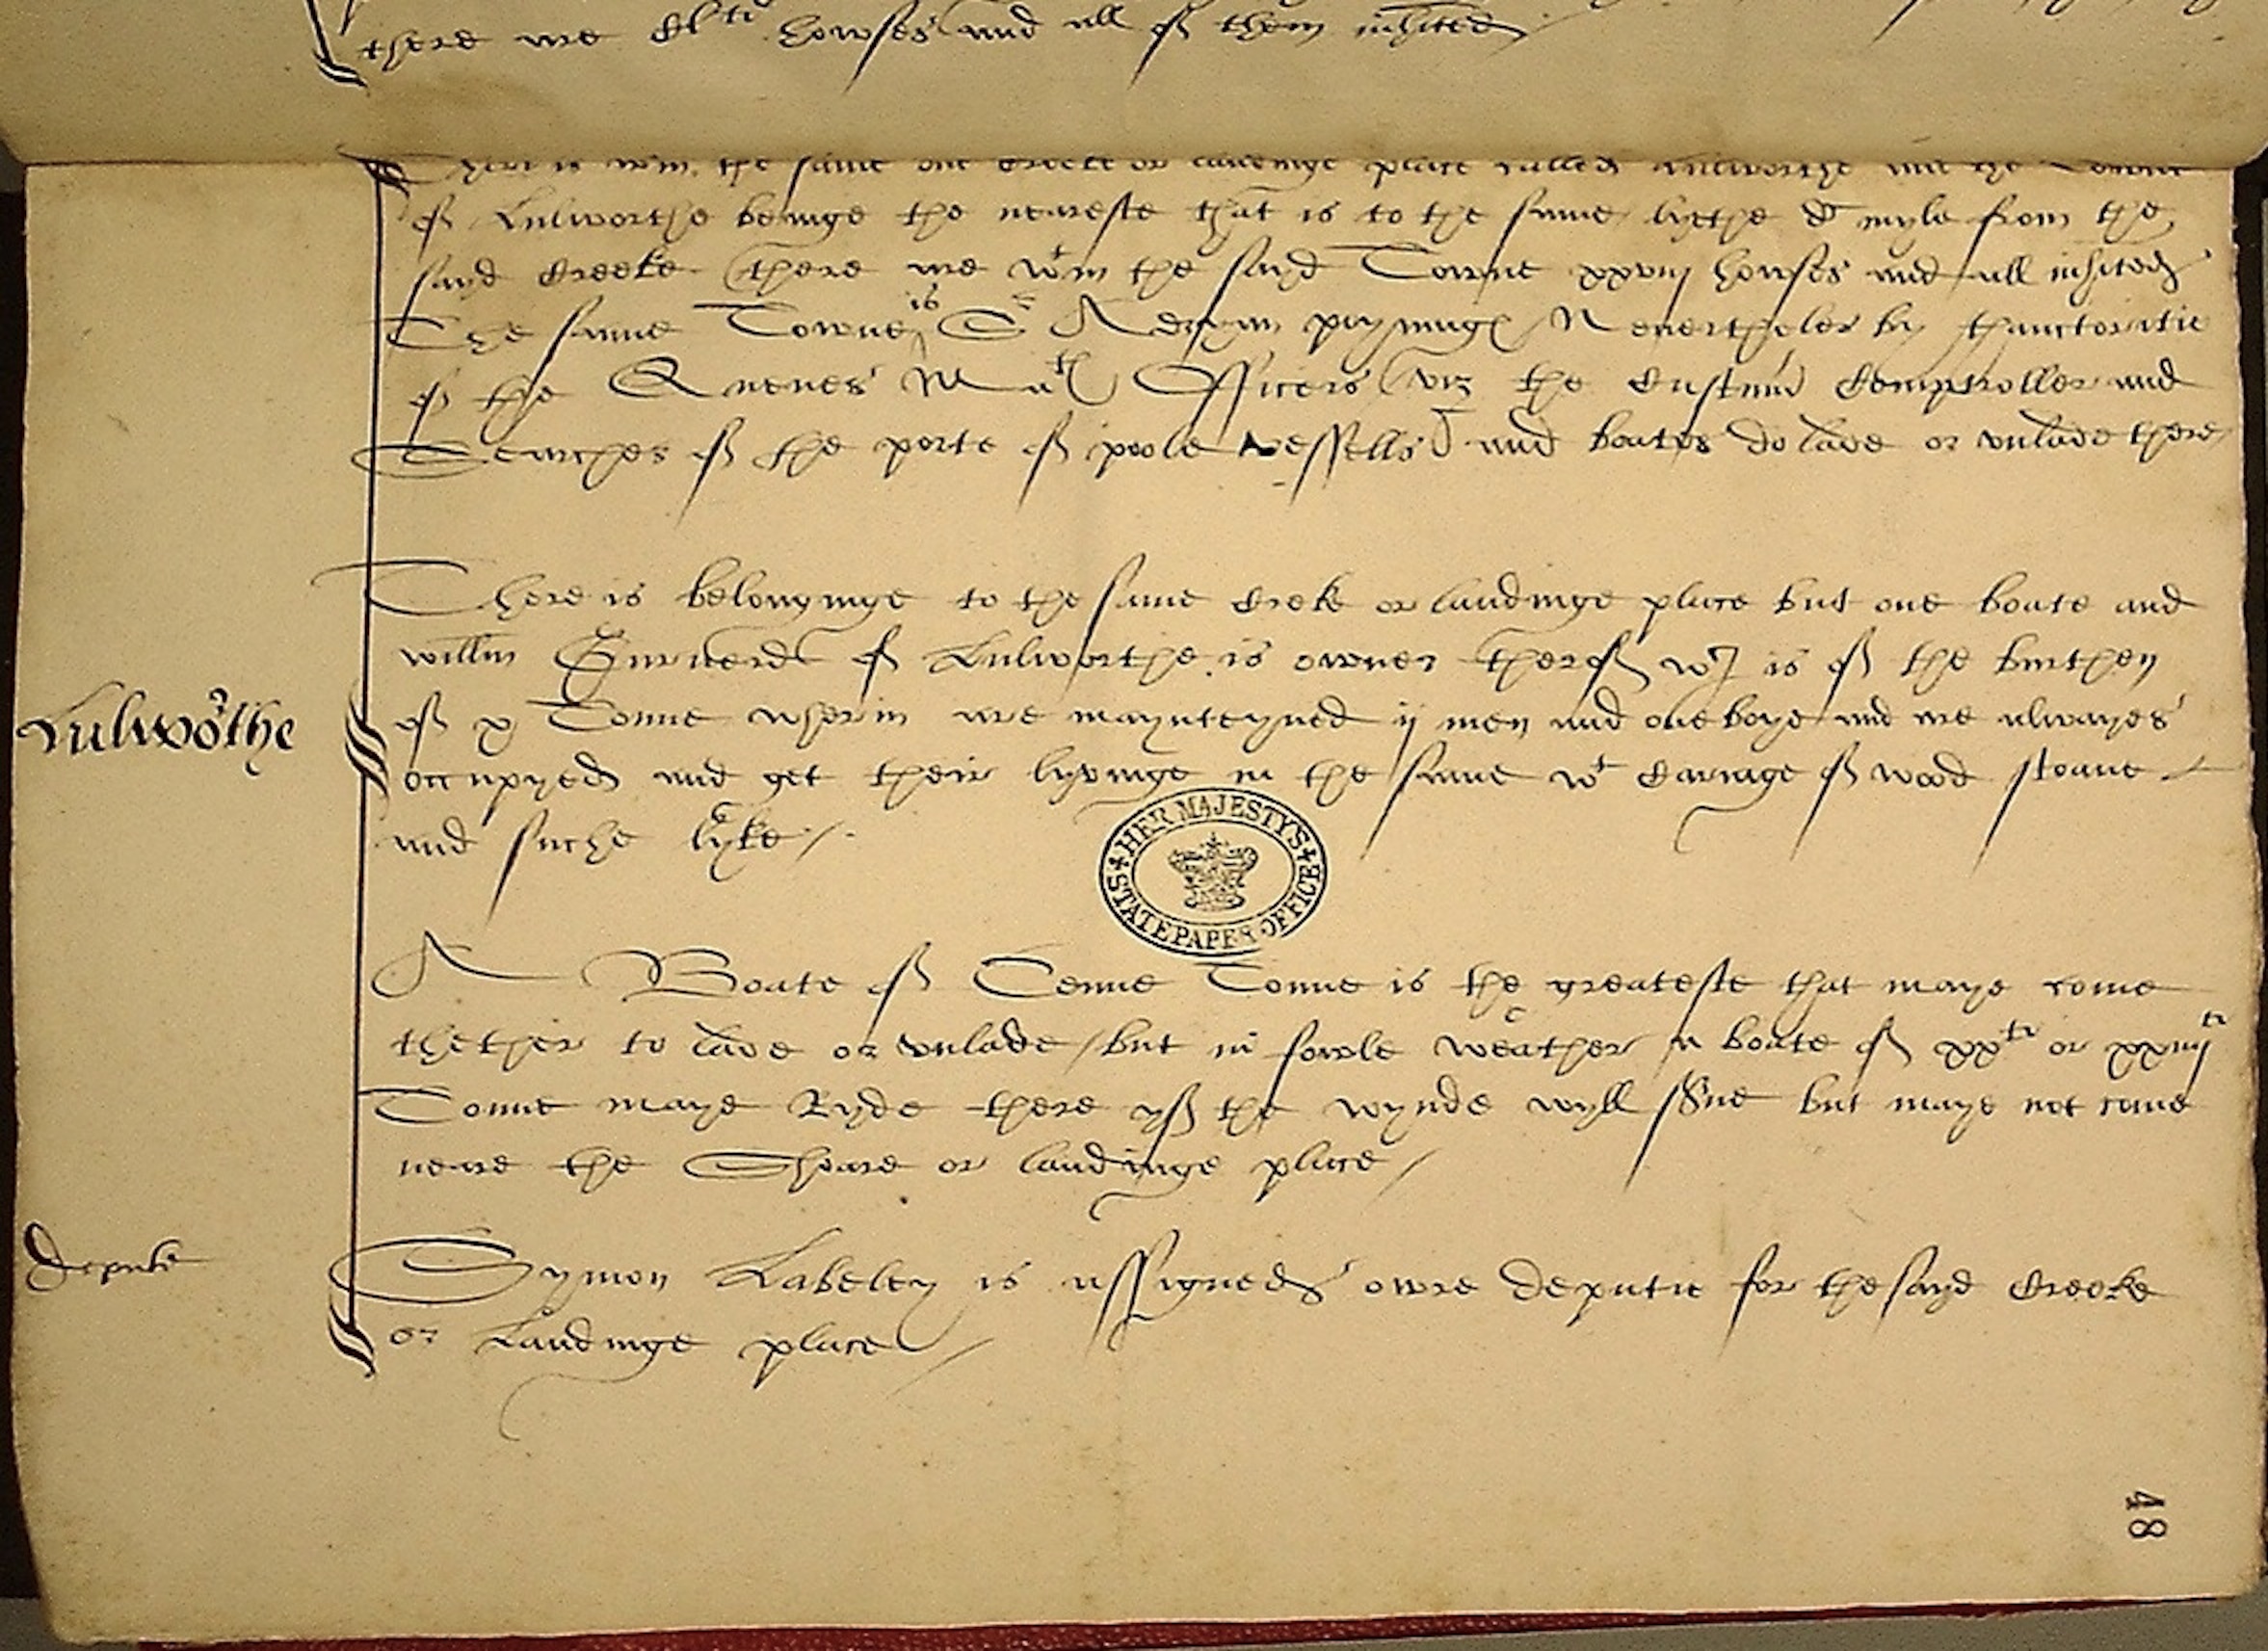 there are Cl^ti howses and all of them inhited
There is w^tin the same one Creeke or landinge place called Lulworthe and the Towne
of Lulworthe beinge the neareste that is to the same lyethe di myle from the
sayd Creeke / there are w^tin the sayd Towne xxviij howses and all inhited
The same Towne is S^r
Nevertheles by thauctoritie
of the Quenes Ma^ts Officers viz the Custm^r Comptroller and
Searcher of the porte of poole vessells and boates do lade or unlade there
There is belonginge to the same Creke or landinge place but one boate and
Willm of Lulworthe is owner therof w^ch is of the burthen
Lulworthe
of x Tonne wherin are maynteyned ij men and one boye and are alwayes
occupyed and get their lyvinge in the same w^t Carriage of wood stoane
and suche lyke /.
HER MAJESTY'S STATE PAPER OFFICE
A Boate of Tenne Tonne is the greateste that maye come
thether to lade or unlade / but in fowle weather a boate of xx^ti or xxiiij^ti
Tonne maye Ryde there yf the wynde wyll s͞ve but maye not come
neare the Shoare or landinge place /
depute
Symon Labeley is assigned owre deputie for the sayd Creeke
or Landinge place /
48